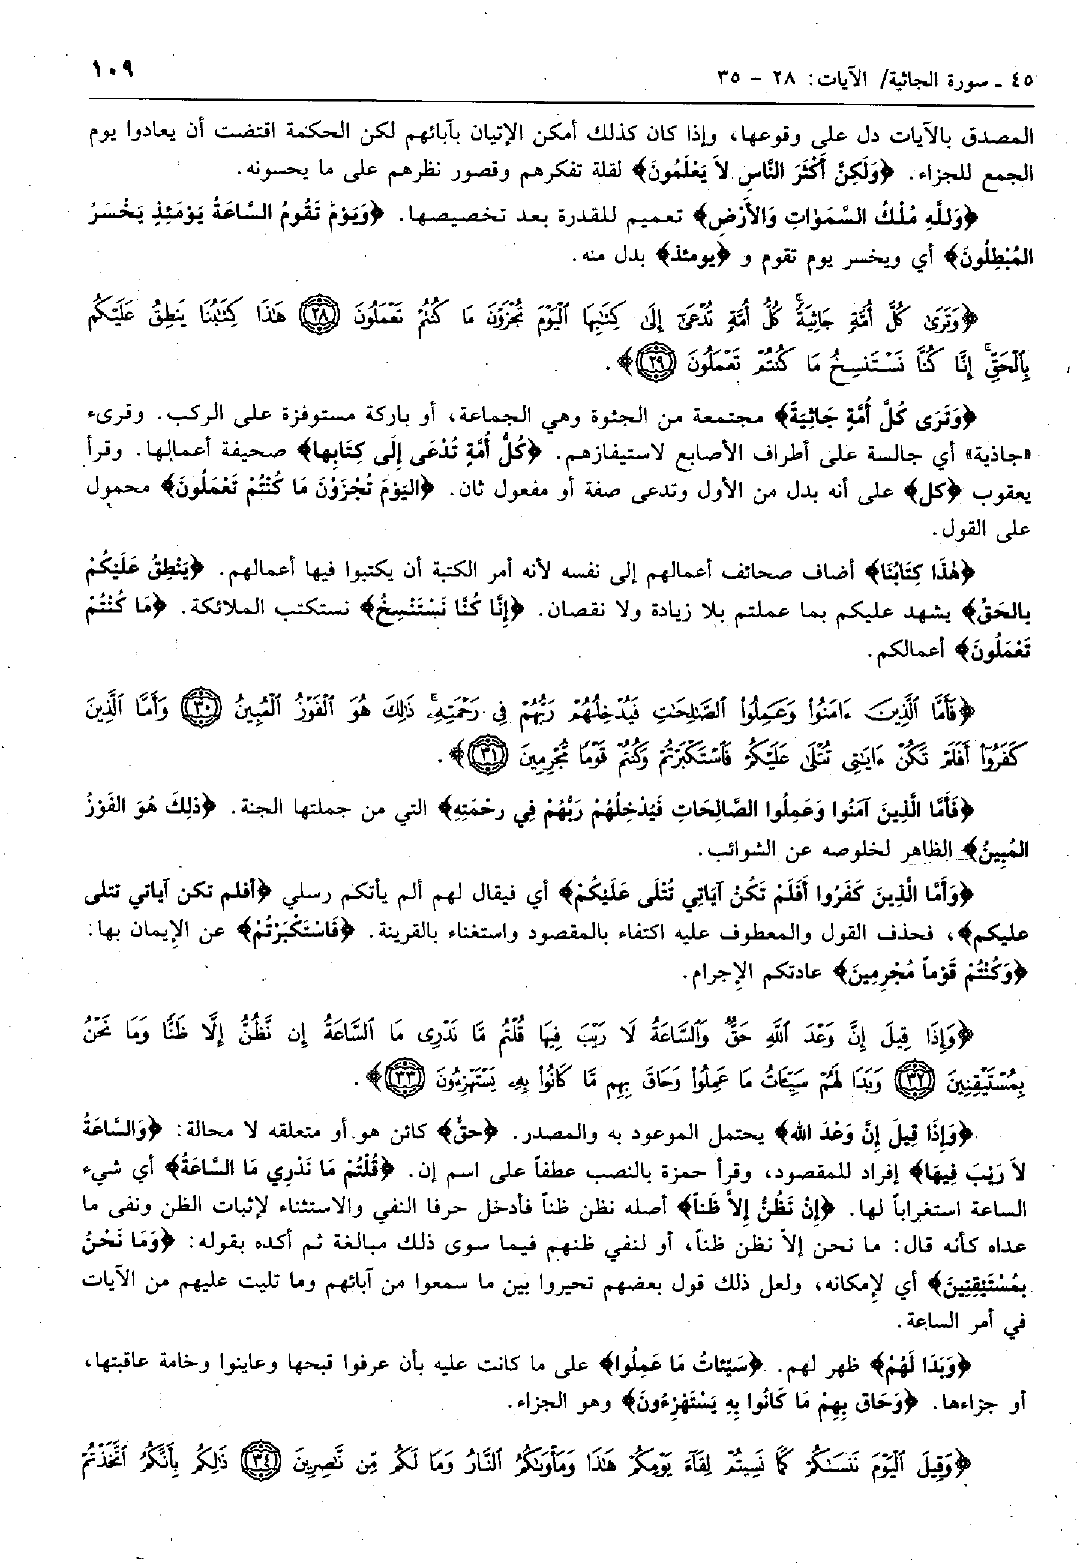 ٤٥ ـ سورة الجاثية/ الآيات: ٢٨ - ٣٥
١٠٩
المصدق بالآيات دل على وقوعها، وإذا كان كذلك أمكن الإتيان بآبائهم لكن الحكمة اقتضت أن يعادوا يوم
الجمع للجزاء. ﴿وَلَكِنَّ أَكْثَرَ النَّاسِ لاَ يَعْلَمُونَ﴾ لقلة تفكرهم وقصور نظرهم على ما يحسونه.
﴿وَللَّهِ مُلْكُ السَّمَوَاتِ وَالأَرْضِ﴾ تعميم للقدرة بعد تخصيصها. ﴿وَيَوْمَ تَقُومُ السَّاعَةُ يَوْمَئِذٍ يَخْسَرُ
المُبْطِلُونَ﴾ أي ويخسر يوم تقوم و ﴿يومئذ﴾ بدل منه.
﴿وَتَرَىٰ كُلَّ أُمَّةٍ جَاثِيَةً ۚ كُلُّ أُمَّةٍ تُدْعَىٰٓ إِلَىٰ كِتَٰبِهَا ٱلْيَوْمَ تُجْزَوْنَ مَا كُنتُمْ تَعْمَلُونَ ﴿٢٨﴾ هَٰذَا كِتَٰبُنَا يَنطِقُ عَلَيْكُم
بِٱلْحَقِّ ۚ إِنَّا كُنَّا نَسْتَنسِخُ مَا كُنتُمْ تَعْمَلُونَ ﴿٢٩﴾﴾.
﴿وَتَرَى كُلَّ أُمَّةٍ جَاثِيَةً﴾ مجتمعة من الجثوة وهي الجماعة، أو باركة مستوفزة على الركب. وقرىء
«جاذية» أي جالسة على أطراف الأصابع لاستيفازهم. ﴿كُلُّ أُمَّةٍ تُدْعَى إِلَى كِتَابِها﴾ صحيفة أعمالها. وقرأ
يعقوب ﴿كل﴾ على أنه بدل من الأول وتدعى صفة أو مفعول ثان. ﴿اليَوْمَ تُجْزَوْنَ مَا كُنْتُمْ تَعْمَلُونَ﴾ محمول
على القول.
﴿هٰذَا كِتَابُنَا﴾ أضاف صحائف أعمالهم إلى نفسه لأنه أمر الكتبة أن يكتبوا فيها أعمالهم. ﴿يَنْطِقُ عَلَيْكُمْ
بالحَقِّ﴾ يشهد عليكم بما عملتم بلا زيادة ولا نقصان. ﴿إِنَّا كُنَّا نَسْتَنْسِخُ﴾ نستكتب الملائكة. ﴿مَا كُنْتُمْ
تَعْمَلُونَ﴾ أعمالكم.
﴿فَأَمَّا ٱلَّذِينَ ءَامَنُوا۟ وَعَمِلُوا۟ ٱلصَّٰلِحَٰتِ فَيُدْخِلُهُمْ رَبُّهُمْ فِى رَحْمَتِهِۦ ۚ ذَٰلِكَ هُوَ ٱلْفَوْزُ ٱلْمُبِينُ ﴿٣٠﴾ وَأَمَّا ٱلَّذِينَ
كَفَرُوٓا۟ أَفَلَمْ تَكُنْ ءَايَٰتِى تُتْلَىٰ عَلَيْكُمْ فَٱسْتَكْبَرْتُمْ وَكُنتُمْ قَوْمًا مُّجْرِمِينَ ﴿٣١﴾﴾.
﴿فَأَمَّا الَّذِينَ آمَنُوا وَعَمِلُوا الصَّالِحَاتِ فَيُدْخِلُهُمْ رَبُّهُمْ فِي رحْمَتِهِ﴾ التي من جملتها الجنة. ﴿ذلِكَ هُوَ الفَوْزُ
المُبِينُ﴾ الظاهر لخلوصه عن الشوائب.
﴿وَأَمَّا الَّذِينَ كَفَرُوا أَفَلَمْ تَكُنْ آيَاتِي تُتْلَى عَلَيْكُمْ﴾ أي فيقال لهم ألم يأتكم رسلي ﴿أفلم تكن آياتي تتلى
عليكم﴾، فحذف القول والمعطوف عليه اكتفاء بالمقصود واستغناء بالقرينة. ﴿فَاسْتَكْبَرْتُمْ﴾ عن الإيمان بها:
﴿وَكُنْتُمْ قَوْماً مُجْرِمِينَ﴾ عادتكم الإجرام.
﴿وَإِذَا قِيلَ إِنَّ وَعْدَ ٱللَّهِ حَقٌّ وَٱلسَّاعَةُ لَا رَيْبَ فِيهَا قُلْتُم مَّا نَدْرِى مَا ٱلسَّاعَةُ إِن نَّظُنُّ إِلَّا ظَنًّا وَمَا نَحْنُ
بِمُسْتَيْقِنِينَ ﴿٣٢﴾ وَبَدَا لَهُمْ سَيِّـَٔاتُ مَا عَمِلُوا۟ وَحَاقَ بِهِم مَّا كَانُوا۟ بِهِۦ يَسْتَهْزِءُونَ ﴿٣٣﴾﴾.
﴿وَإِذَا قِيلَ إِنَّ وَعْدَ الله﴾ يحتمل الموعود به والمصدر. ﴿حقٌّ﴾ كائن هو أو متعلقه لا محالة: ﴿وَالسَّاعَةُ
لاَ رَيْبَ فِيهَا﴾ إفراد للمقصود، وقرأ حمزة بالنصب عطفاً على اسم إن. ﴿قُلْتُمْ مَا نَدْرِي مَا السَّاعَةُ﴾ أي شيء
الساعة استغراباً لها. ﴿إِنْ نَظُنُّ إِلاَّ ظَناً﴾ أصله نظن ظناً فأدخل حرفا النفي والاستثناء لإثبات الظن ونفى ما
عداه كأنه قال: ما نحن إلاَّ نظن ظناً، أو لنفي ظنهم فيما سوى ذلك مبالغة ثم أكده بقوله: ﴿وَمَا نَحْنُ
بِمُسْتَيْقِنِينَ﴾ أي لإِمكانه، ولعل ذلك قول بعضهم تحيروا بين ما سمعوا من آبائهم وما تليت عليهم من الآيات
في أمر الساعة.
﴿وَبَدَا لَهُمْ﴾ ظهر لهم. ﴿سَيِّئَاتُ مَا عَمِلُوا﴾ على ما كانت عليه بأن عرفوا قبحها وعاينوا وخامة عاقبتها،
أو جزاءها. ﴿وَحَاق بِهِمْ مَا كَانُوا بِهِ يَسْتَهْزِءُونَ﴾ وهو الجزاء.
﴿وَقِيلَ ٱلْيَوْمَ نَنسَىٰكُمْ كَمَا نَسِيتُمْ لِقَآءَ يَوْمِكُمْ هَٰذَا وَمَأْوَىٰكُمُ ٱلنَّارُ وَمَا لَكُم مِّن نَّٰصِرِينَ ﴿٣٤﴾ ذَٰلِكُم بِأَنَّكُمُ ٱتَّخَذْتُمْ